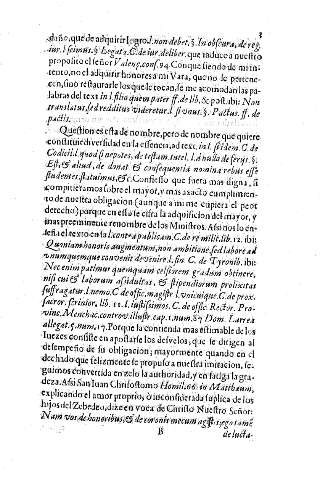 daño, que de adquirir logro. l. non debet. §. In obscura, de reg.
iur. l. scimus. §. Legata. C. de iur. deliber. que reduce a nuestro
proposito el señor Valenç. conf. 94. Con que siendo de mi in-
tento, no el adquirir honores a mi Vara, que no le pertene-
cen, sino restaurarle los que le tocan, se me acomodan las pa-
labras del text. in l. filio quem pater ff. de lib. & post. ibi: Non
translatus, sed redditus videretur. l. si vnus. §. Pactus. ff. de
pactis.
Question es esta de nombre, pero de nombre que quiere
constituir diversidad en la essencia, ad text. in l. fidem. C. de
Codicil. l. quod si nepotes, de testam. tutel. l. ancilla de seruis. §.
Est, & aliud, de donat. & consequentia nomina rebus esse
studentes, statuimus, &c. Confiesso que fuera mas digna, si
compitieramos sobre el mayor, y mas exacto cumplimien-
to de nuestra obligacion (aunque a mi me cupiera el peor
derecho) porque en essa se cifra la adquisicion del mayor, y
mas preeminente renombre de los Ministros. Assi nos lo en-
seña el texto en la l. contra publicam. C. de re milit. lib. 12. ibi:
Quoniam honoris augmentum, non ambitione, sed labore ad
vnumquemque convenit devenire. l. fin. C. de Tyronib. ibi:
Nec enim patimur quemquam celsiorem gradum obtinere,
nisi cui & laborum assiduitas, & stipendiorum prolixitas
suffragatur. l. nemo. C. de offic. magistr. l. vnic. C. de prox.
sacror. scrinior. lib. 12. l. iustissimos. C. de offic. Rector. Pro-
vinc. Menchac. controv. illustr. cap. 1. num. 8. Dom. Larrea
allegat. 5. num. 17. Porque la contienda mas estimable de los
Iuezes consiste en apostarse los desvelos, que se dirigen al
desempeño de su obligacion; mayormente quando en el
dechado que felizmente se propuso a nuestra imitacion, se-
guimos convertida en zelo la authoridad, y en fatiga la gra-
deza. Assi San Iuan Chrisostomo Homil. 66. in Mattheum,
explicando el amor proprio, ò inconsiderada suplica de los
hijos del Zebedeo, dize en voca de Christo Nuestro Señor:
Nam vos, de honoribus, & de coronis mecum agitis; ego tamẽ
B
de lucta-